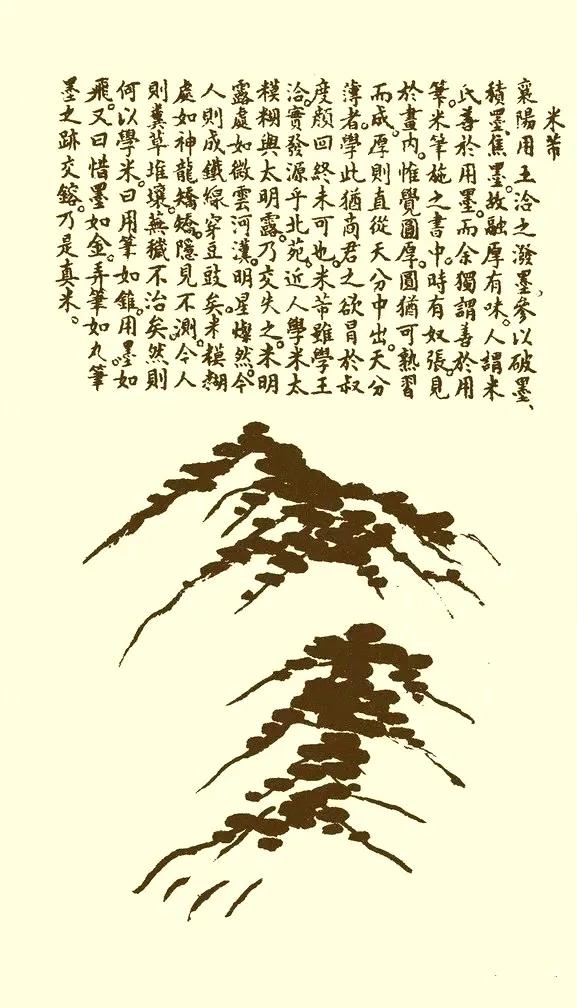 米芾
襄陽用王洽之潑墨、參以破墨、
積墨焦墨。故融厚有味。人謂米
氏善於用墨。而余獨謂善於用
筆。米筆施之書中。時有奴張。見
於畫內。惟覺圓厚。圓猶可熟習
而成。厚則直從天分中出。天分
薄者。學此猶商君之欲冐於叔
度顏回終未可也。米芾雖學王
洽。實發源乎北苑。近人學米太
模糊與太明露。乃交失之。米明
露處如微雲河漢。明星燦然。今
人則成鐵線穿豆豉矣。米模糊
處如神龍矯矯。隱見不測。今人
則糞草堆壤。蕪穢不治矣。然則
何以學米。曰用筆如錐。用墨如
飛。又曰惜墨如金。弄筆如丸筆
墨之跡交鎔。乃是真米。